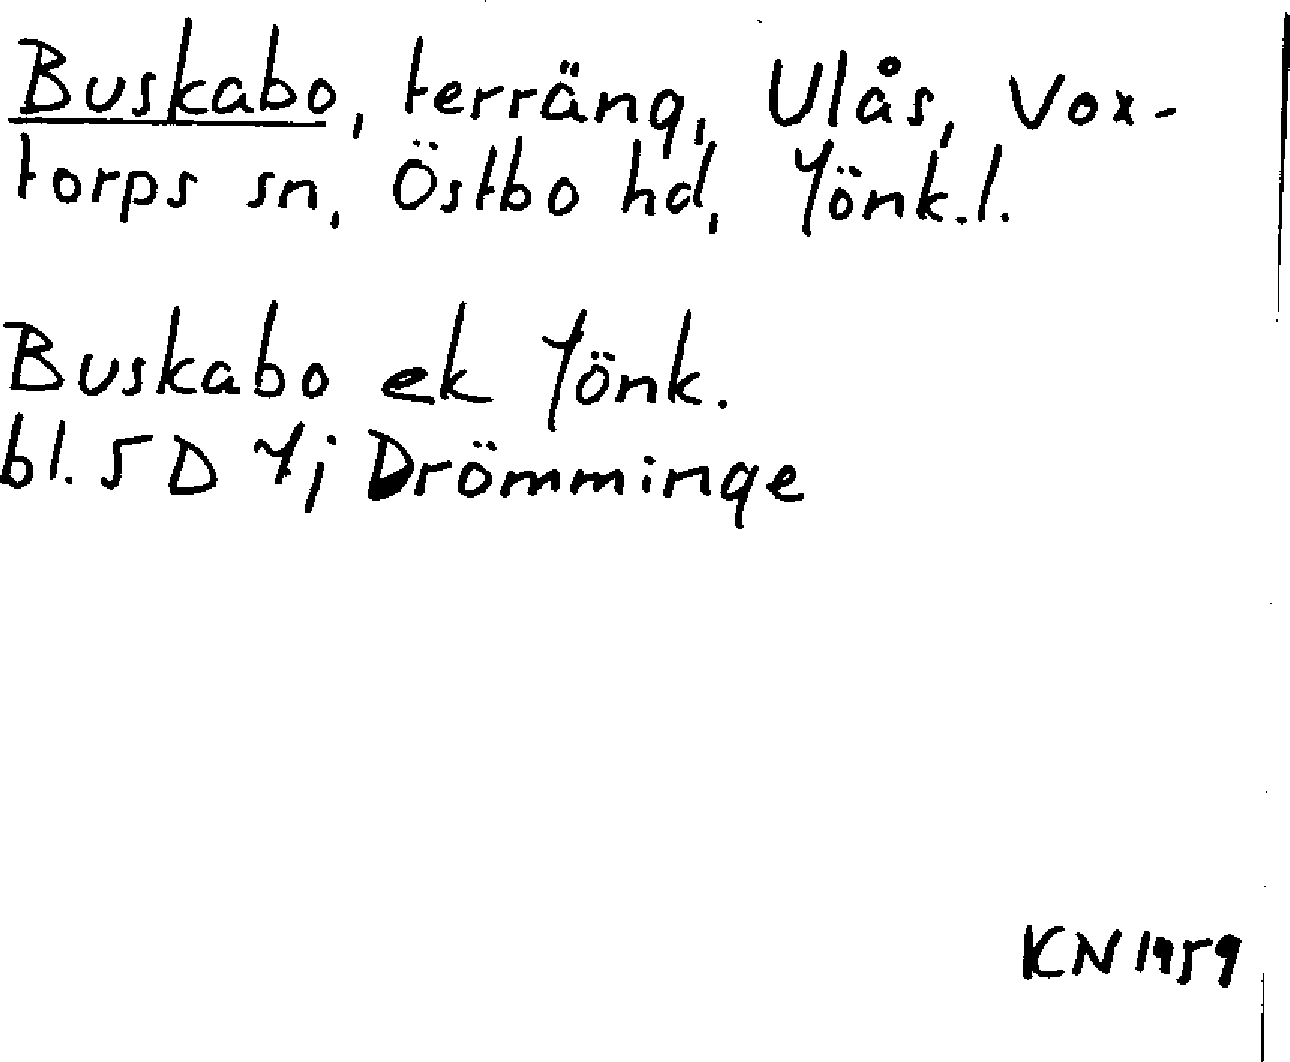 Buskabo, terräng, Ulås, Vox-
torps sn, Östbo hd, Jönk.l.
Buskabo ek Jönk.
bl. 5D 7j Drömminge
KN 1959